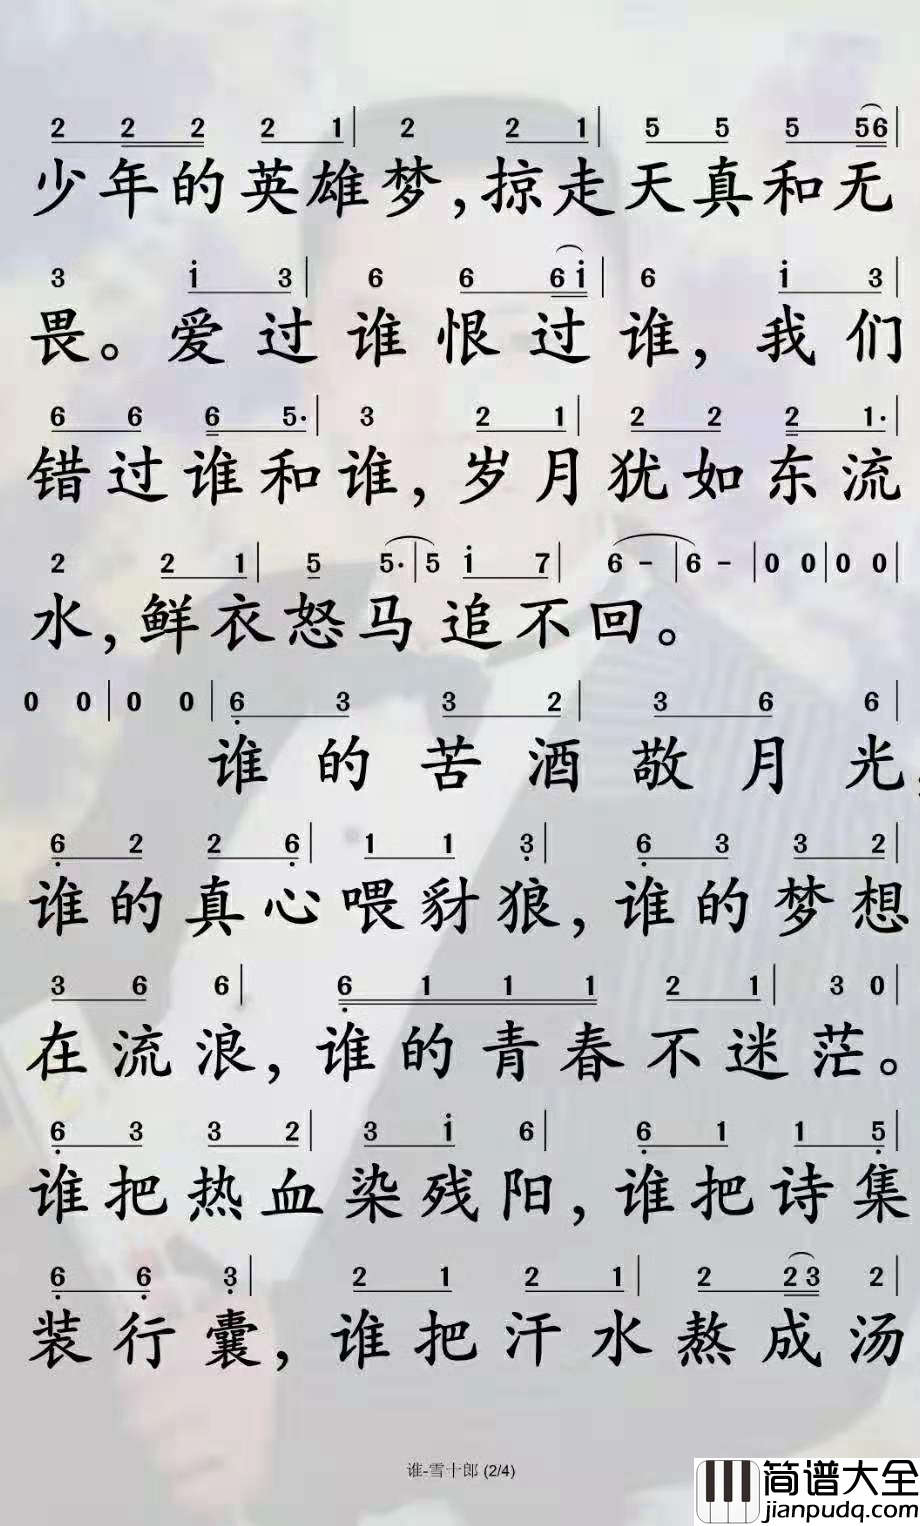 2 2 2 2 1| 2 2 1| 5 5 5 56|
少年的英雄梦,掠走天真和无
3 i 3| 6 6 6i| 6 i 3|
畏。爱过谁恨过谁,我们
6 6 6 5·| 3 2 1| 2 2 2 1·|
错过谁和谁,岁月犹如东流
2 2 1| 5 5·|5 i 7| 6 -|6 -|0 0|0 0|
水,鲜衣怒马追不回。
0 0|0 0|6 3 3 2| 3 6 6|
谁的苦酒敬月光,
6 2 2 6| 1 1 3| 6 3 3 2|
谁的真心喂豺狼,谁的梦想
3 6 6| 6 1 1 1 2 1| 3 0|
在流浪,谁的青春不迷茫。
6 3 3 2| 3 i 6| 6 1 1 5|
谁把热血染残阳,谁把诗集
6 6 3| 2 1 2 1| 2 23 2|
装行囊,谁把汗水熬成汤
谁-雪十郎 (2/4)
简谱大全
jianpudq.com